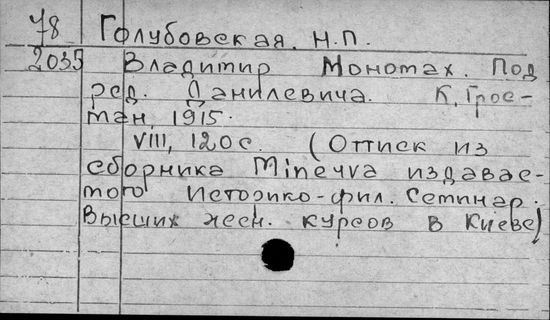 78 Голубовская. Н.П.
2035 Владимир Мономах. Под
ред. Данилевича. К, Грос-
ман, 1915.
VIII, 120 с. (Оттиск из
сборника Minerva издавае-
мого Историко-фил. Семинар.
Высших жен. курсов в Киеве)